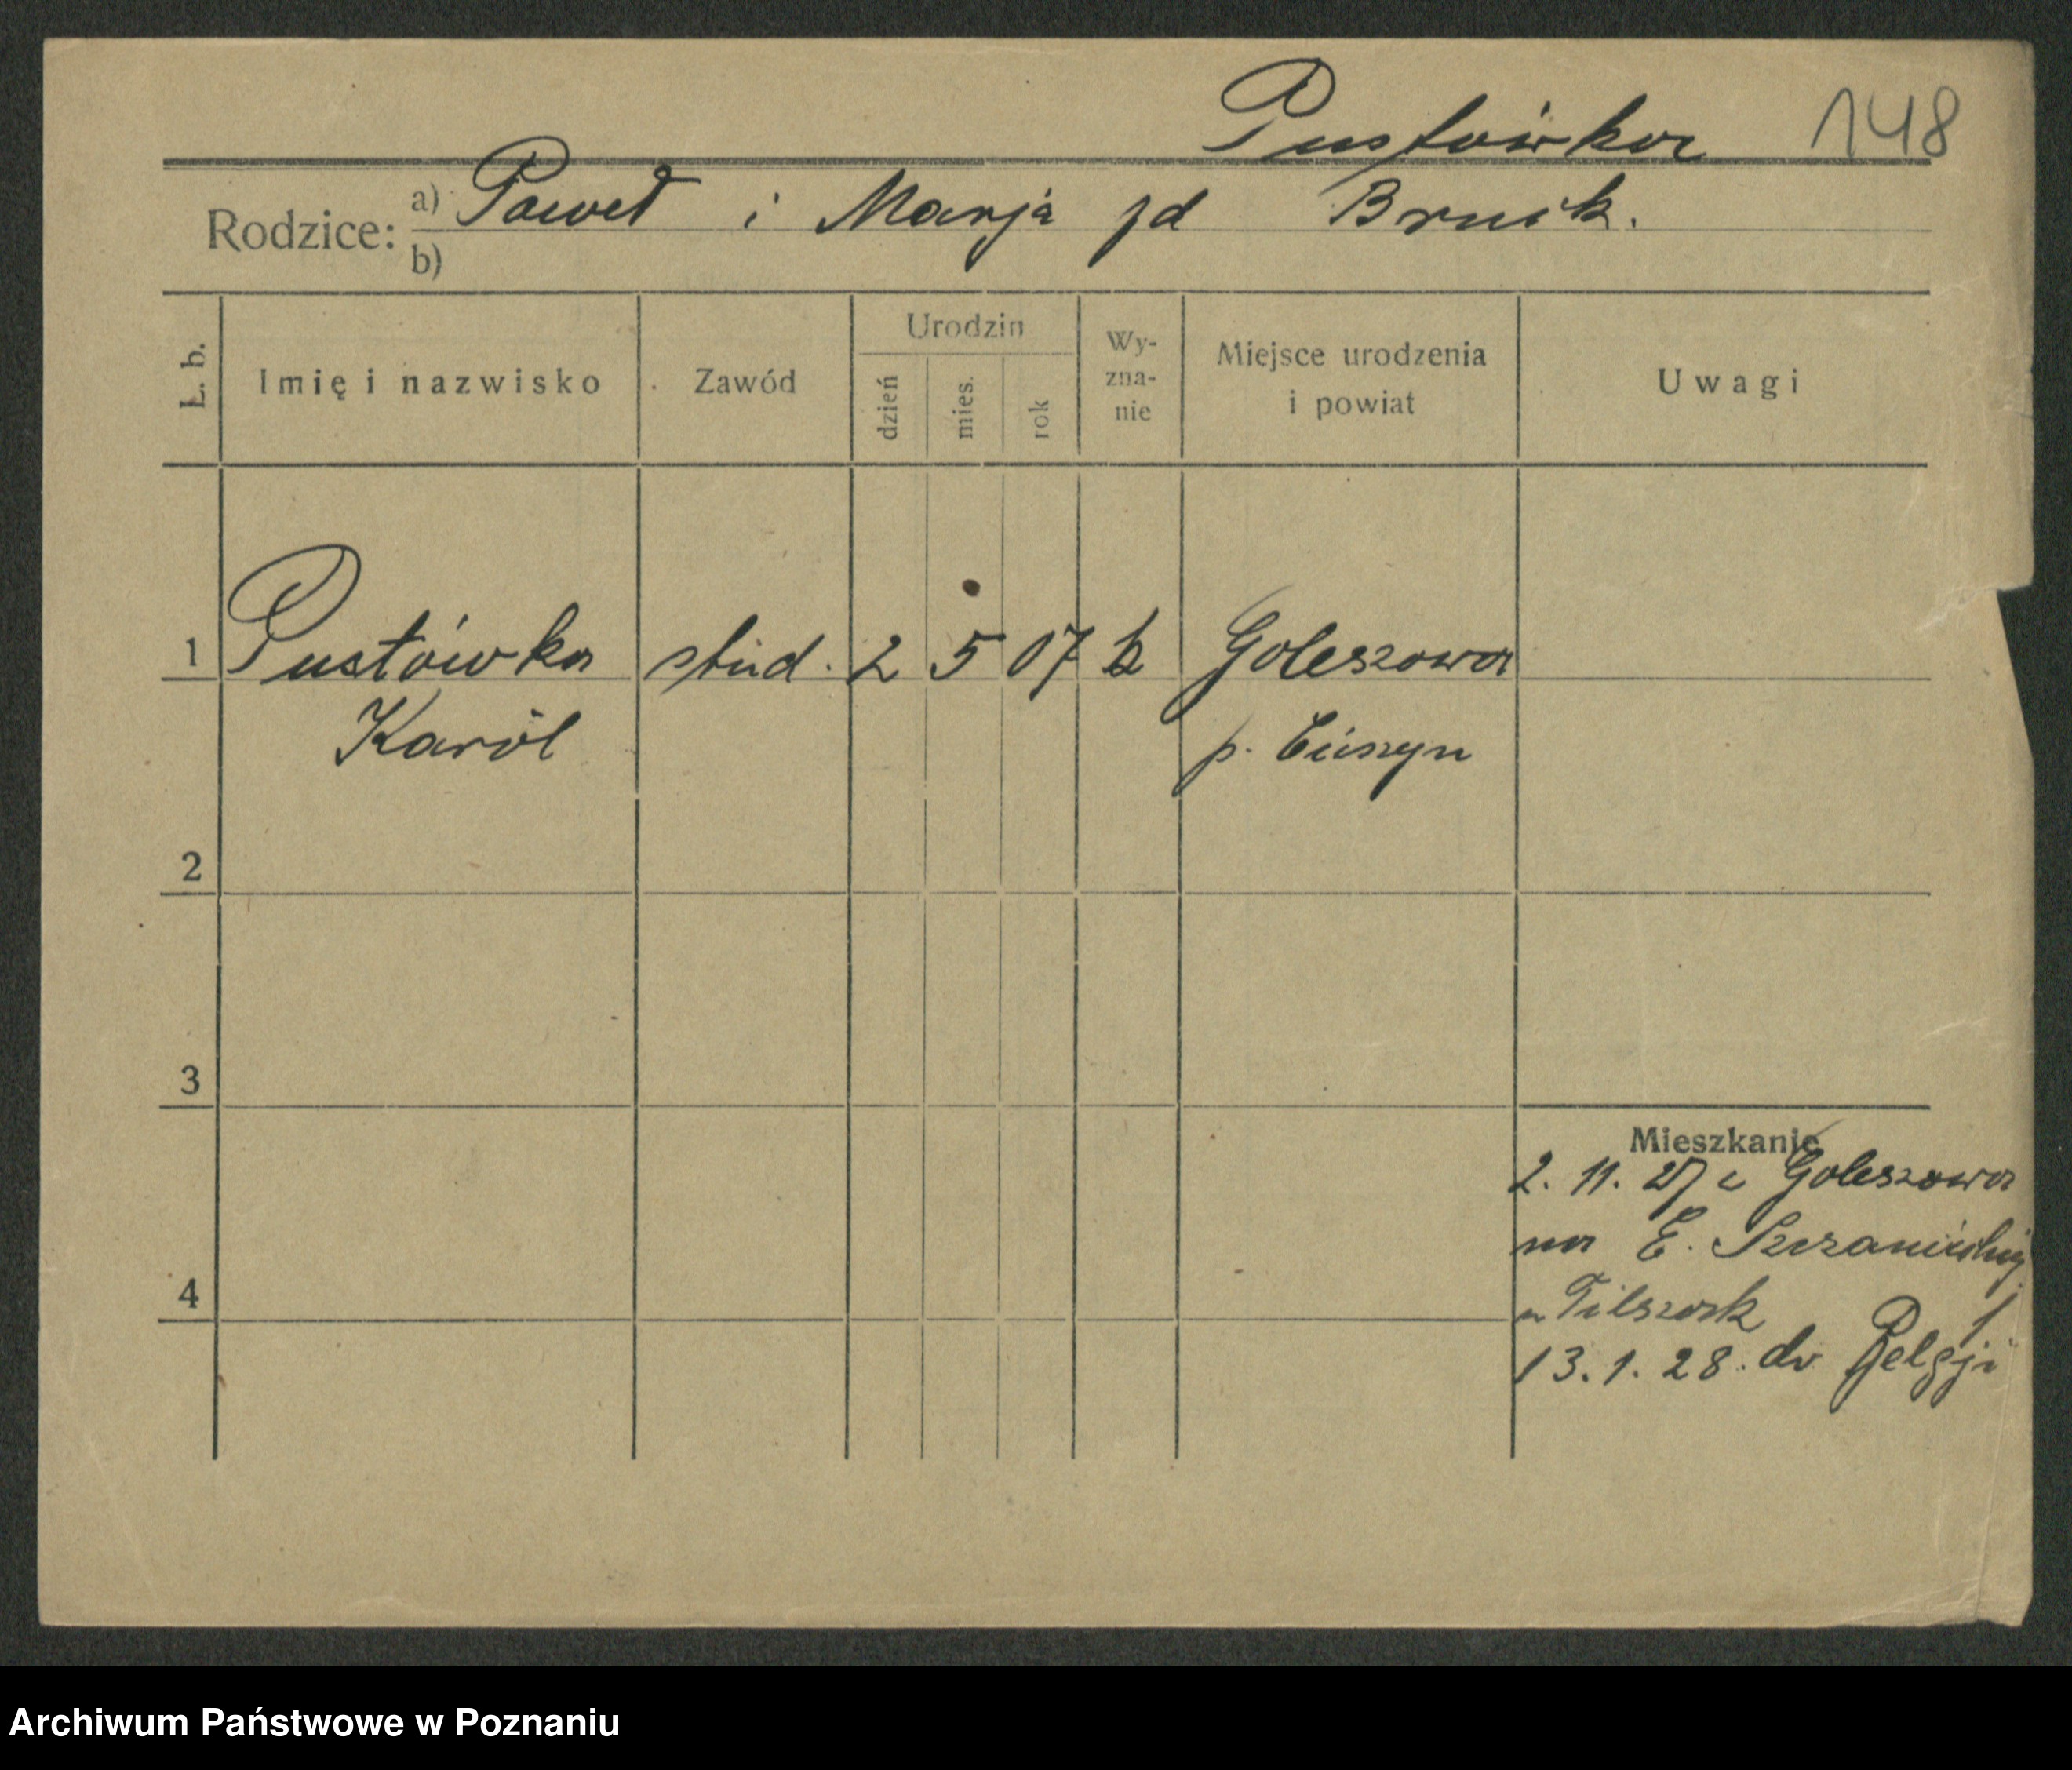 Pustówka 148
Rodzice: a) Paweł i Marja zd Bruik.
b)
L. b.
Imię i nazwisko
Zawód
Urodzin
dzień
mies.
rok
Wy-
zna-
nie
Miejsce urodzenia
i powiat
Uwagi
1 Pustówka stud. 2 5 07 Goleszowa
Karól p. Cieszyn
2
3
Mieszkanie
2. 11. 27 z Goleszowa
na E. Sczanieckiej
u Pilszark
4
13. 1. 28. do Belgji
Archiwum Państwowe w Poznaniu